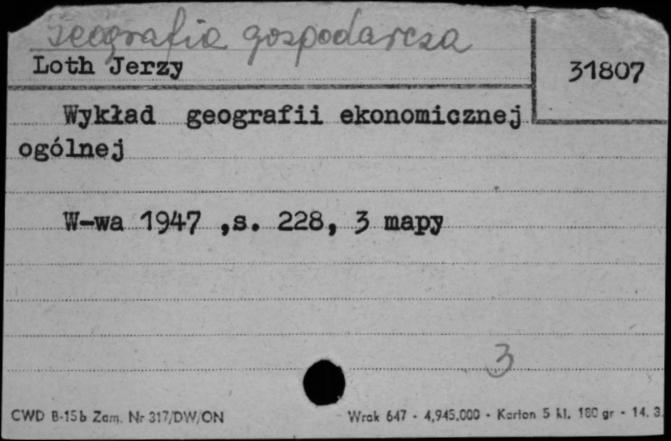 geografia gospodarcza
Loth Jerzy
31807
Wykład geografii ekonomicznej
ogólnej
W-wa 1947 ,s. 228, 3 mapy
3
CWD B-15b Zam. Nr 317/DW/ON
Wrak 647 - 4,945.000 - Karton 5 kl. 180 gr - 14. 3.